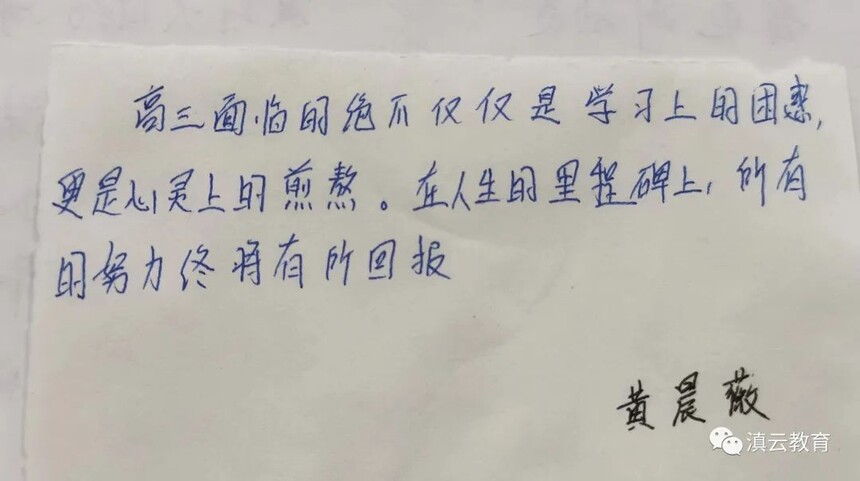 高三面临的绝不仅仅是学习上的困惑,
更是心灵上的煎熬。在人生的里程碑上,所有
的努力终将有所回报
黄晨薇
滇云教育